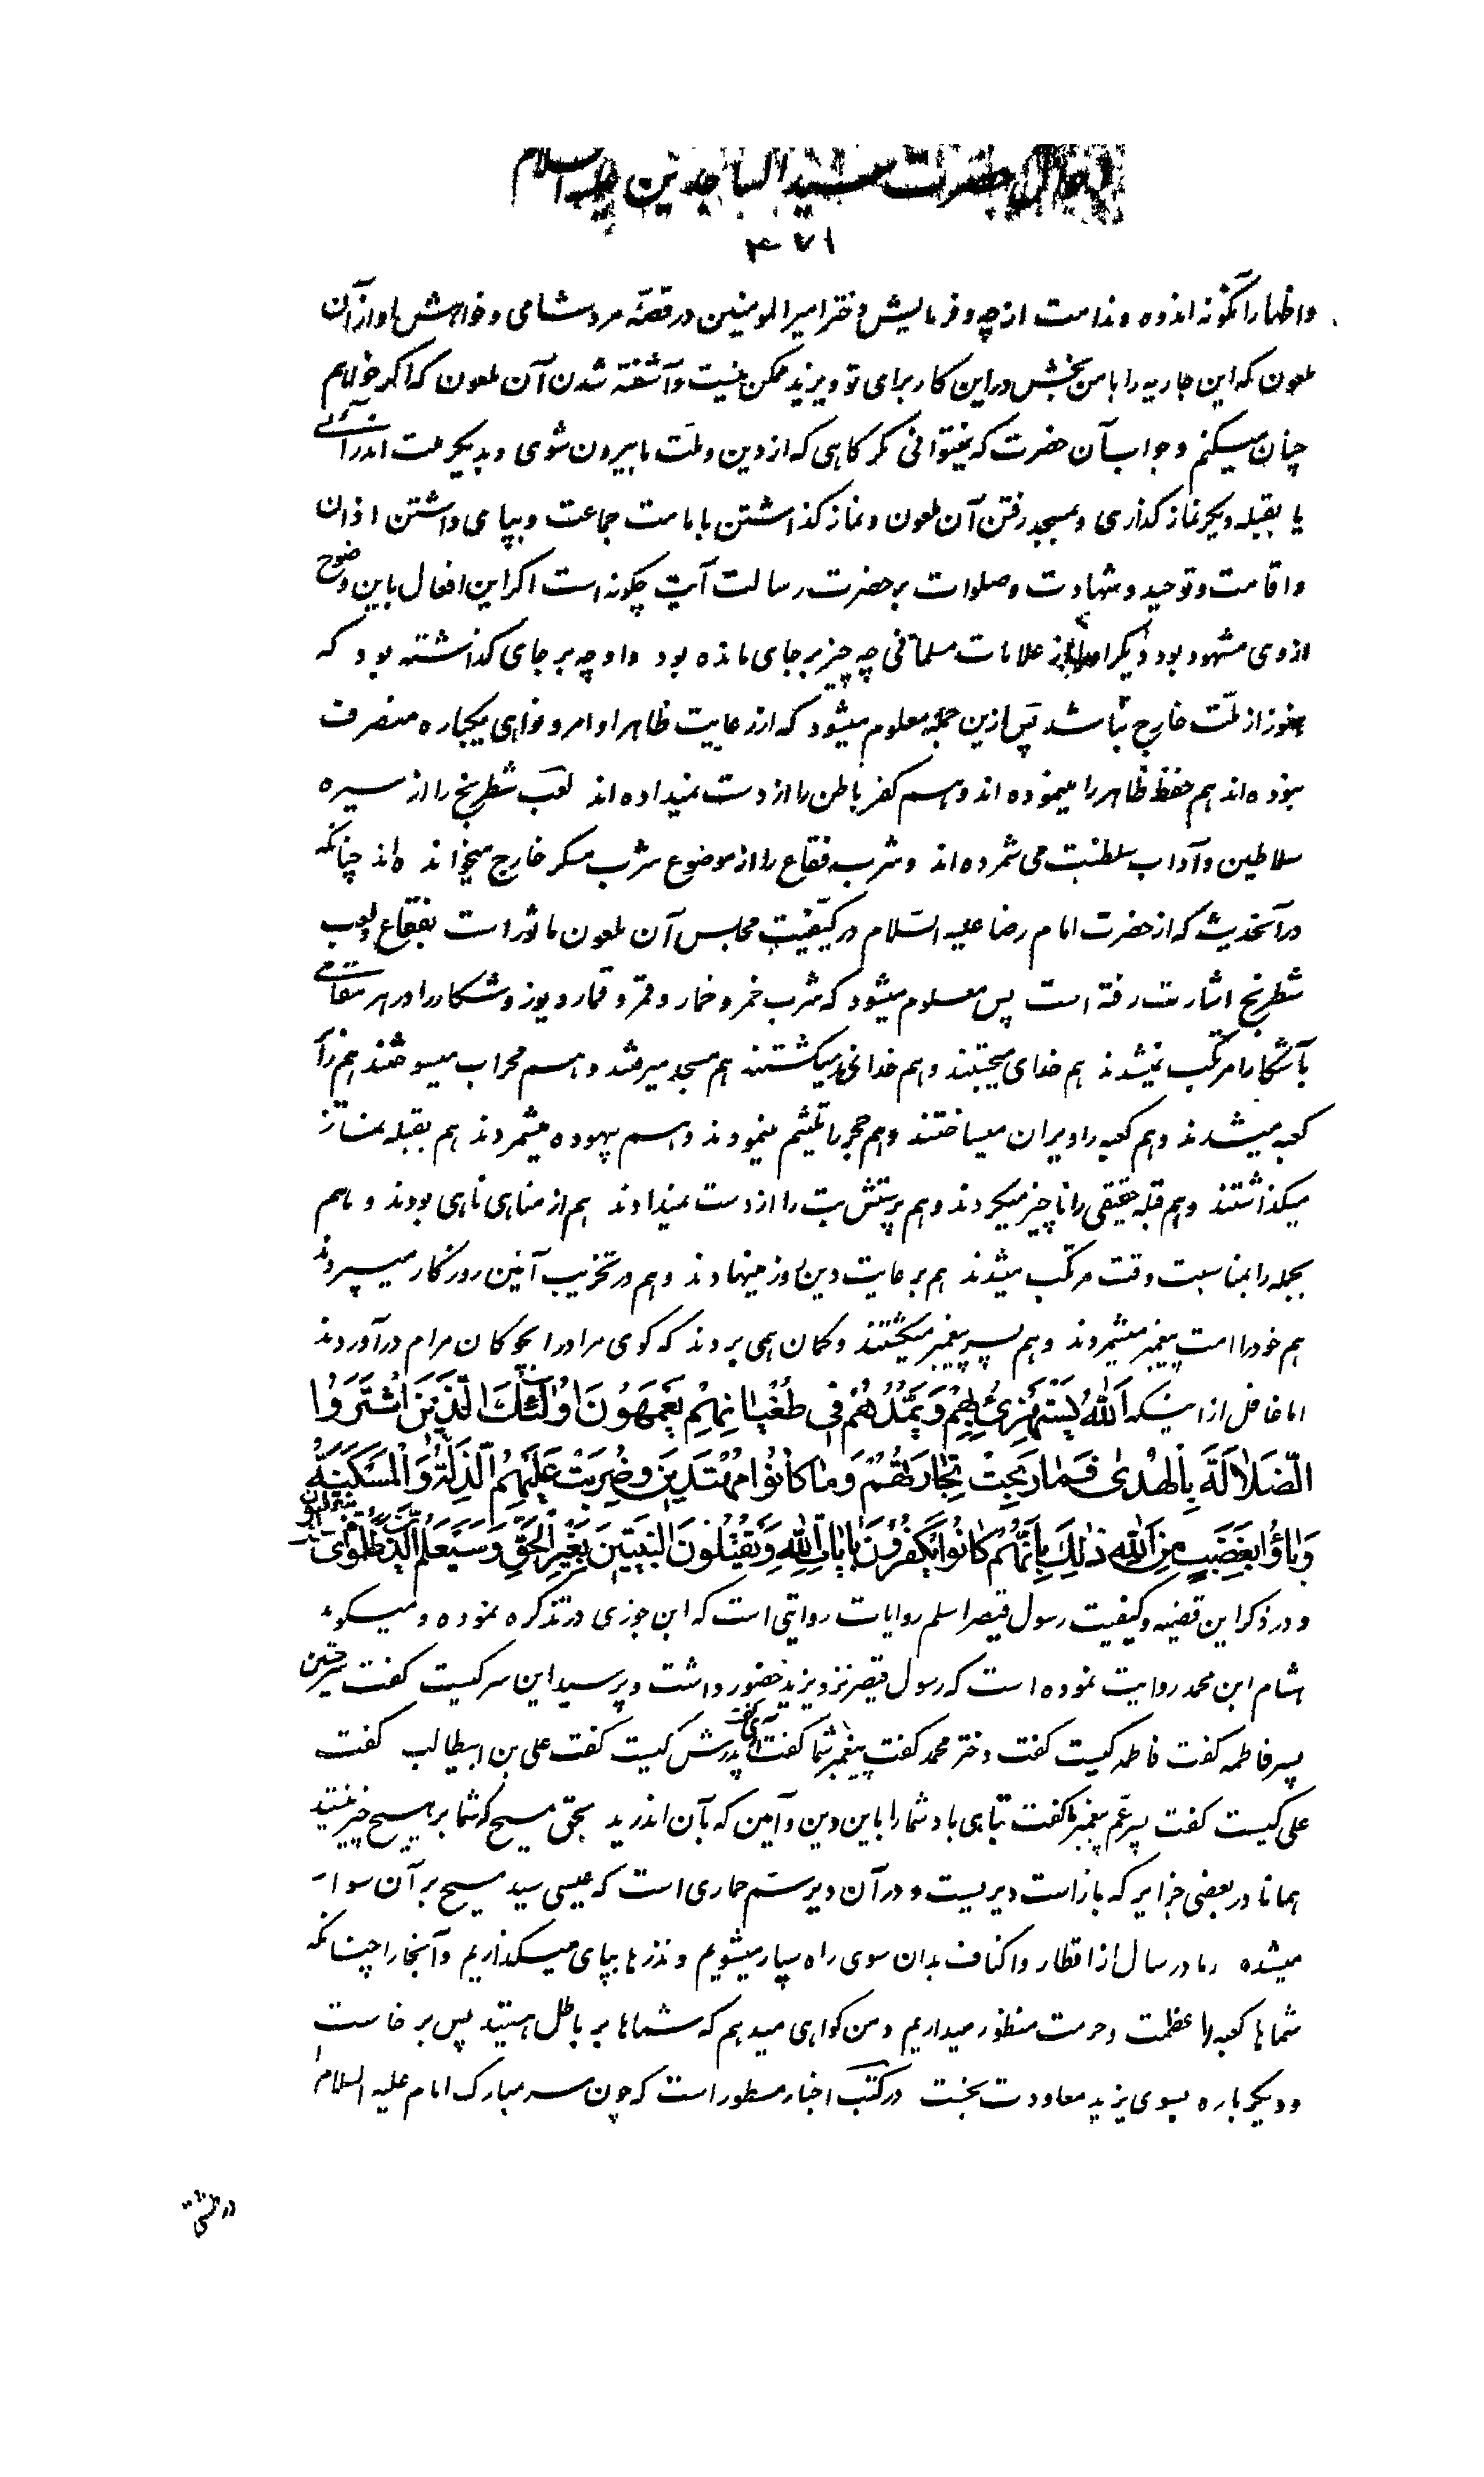 احوال حضرت سید الساجدین علیه السلام
۴۷۱
و اظهار آنگونه اندوه و ندامت از چه و فرمایش دختر امیر المومنین در قصّه مرد شامی و خواهش او از آن
ملعون که این جاریه را با من بخش در این کار برای تو و یزید ممکن نیست و آشفته شدن آن ملعون که اگر خواهم
چنان میکنم و جواب آن حضرت که نمیتوانی مگر گاهی که از دین و ملّت ما بیرون شوی و بدیگر ملت اندر آئی
یا بقبله دیگر نماز گذاری و بمسجد رفتن آن ملعون و نماز گذاشتن بامامت جماعت و بپای داشتن اذان
و اقامت و توحید و شهادت و صلوات بر حضرت رسالت آیت چگونه است اگر این افعال باین وضوح
از وی مشهود بود دیگر از علامات مسلمانی چه چیز بر جای مانده بود و او چه بر جای گذاشته بود که
هنوز از ملّت خارج نباشد پس ازین جمله معلوم میشود که از رعایت ظاهر اوامر و نواهی یکباره منصرف
نبوده‌اند هم حفظ ظاهر را مینموده اند و هم کفر باطن را از دست نمیداده اند لعب شطرنج را از سیره
سلاطین و آداب سلطنت می شمرده اند و شرب فقاع را از موضوع شرب مسکر خارج میخوانده اند چنانکه
در آنحدیث که از حضرت امام رضا علیه السّلام در کیفیت مجالس آن ملعون ماثور است بفقاع و لعب
شطرنج اشارت رفته است پس معلوم میشود که شرب خمر و خمار و قمر و قمار و یوز و شکار را در هر مقامی
بآشکارا مرتکب نمیشدند هم خدای میجستند و هم خدا میکشتند هم مسجد میرفتند و هم محراب میسوختند هم زائر
کعبه میشدند و هم کعبه را ویران میساختند و هم حجر را تلثیم مینمودند و هم بیهوده میشمردند هم بقبله نماز
میگذاشتند و هم قبله حقیقی را ناچیز میکردند و هم پرستش بت را از دست نمیدادند هم از مناهی ناهی بودند و هم
بجمله را بمناسبت وقت مرتکب میشدند هم بر عایت دین روز مینهادند و هم در تخریب آئین روزگار میسپردند
هم خود را امت پیغمبر میشمردند و هم پسر پیغمبر میکشتند و گمان همی بردند که گوی مراد را بچوگان مرام در آوردند
اما غافل از اینکه اَللّٰهُ یَسْتَهْزِئُ بِهِمْ وَیَمُدُّهُمْ فی طُغْیٰانِهِمْ یَعْمَهُونَ اُولٰئِکَ الَّذینَ اشْتَرَوُا
الضَّلاٰلَةَ بِالْهُدیٰ فَمٰا رَبِحَتْ تِجٰارَتُهُمْ وَمٰا کٰانُوا مُهْتَدینَ وَضُرِبَتْ عَلَیْهِمُ الذِّلَّةُ وَالْمَسْکَنَةُ
وَبٰاؤُا بِغَضَبٍ مِنَ اللّٰهِ ذٰلِکَ بِاَنَّهُمْ کٰانُوا یَکْفُرُونَ بِاٰیٰاتِ اللّٰهِ وَیَقْتُلُونَ النَّبِیّینَ بِغَیْرِ الْحَقِّ وَسَیَعْلَمُ الَّذینَ ظَلَمُوا اَیَّ مُنْقَلَبٍ یَنْقَلِبُونَ
و در ذکر این قضیه و کیفیت رسول قیصر اسلم روایات روایتی است که ابن جوزی در تذکره نموده و میگوید
هشام ابن محمد روایت نموده است که رسول قیصر نزد یزید حضور داشت و پرسید این سر کیست گفت سر حسین
پسر فاطمه گفت فاطمه کیست گفت دختر محمد گفت پیغمبر شما گفت آری گفت پدرش کیست گفت علی بن ابیطالب گفت
علی کیست گفت پسر عمّ پیغمبر ما گفت تباهی باد شما را باین دین و آیین که بآن اندرید بحق مسیح که شما بر هیچ چیز نیستید
همانا در بعضی جزایر که باز است دیریست و در آن دیر سمّ حماری است که عیسی سید مسیح بر آن سوار
میشده و ما در سال از اقطار و اکناف بدان سوی راه سپار میشویم و نذر ها بپای میگذاریم و آنجا را چنانکه
شماها کعبه را عظمت و حرمت منظور میدارید و من گواهی میدهم که شماها بر باطل هستید پس بر خاست
و دیگر باره بسوی یزید معاودت نجست در کتب اخبار مسطور است که چون سر مبارک امام علیه السلام